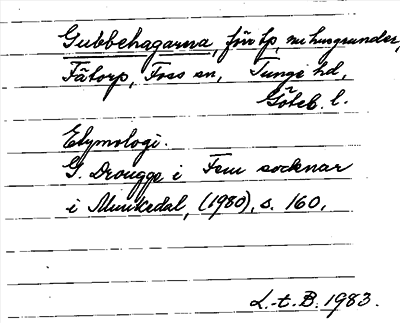 Gubbehagarna, förr tp, nu husgrunder,
Fåtorp, Foss sn, Tunge hd,
Göteb. l.
Etymologi.
G. Drougge i Fem socknar
i Munkedal, (1980), s. 160.
L.-t. B. 1983.